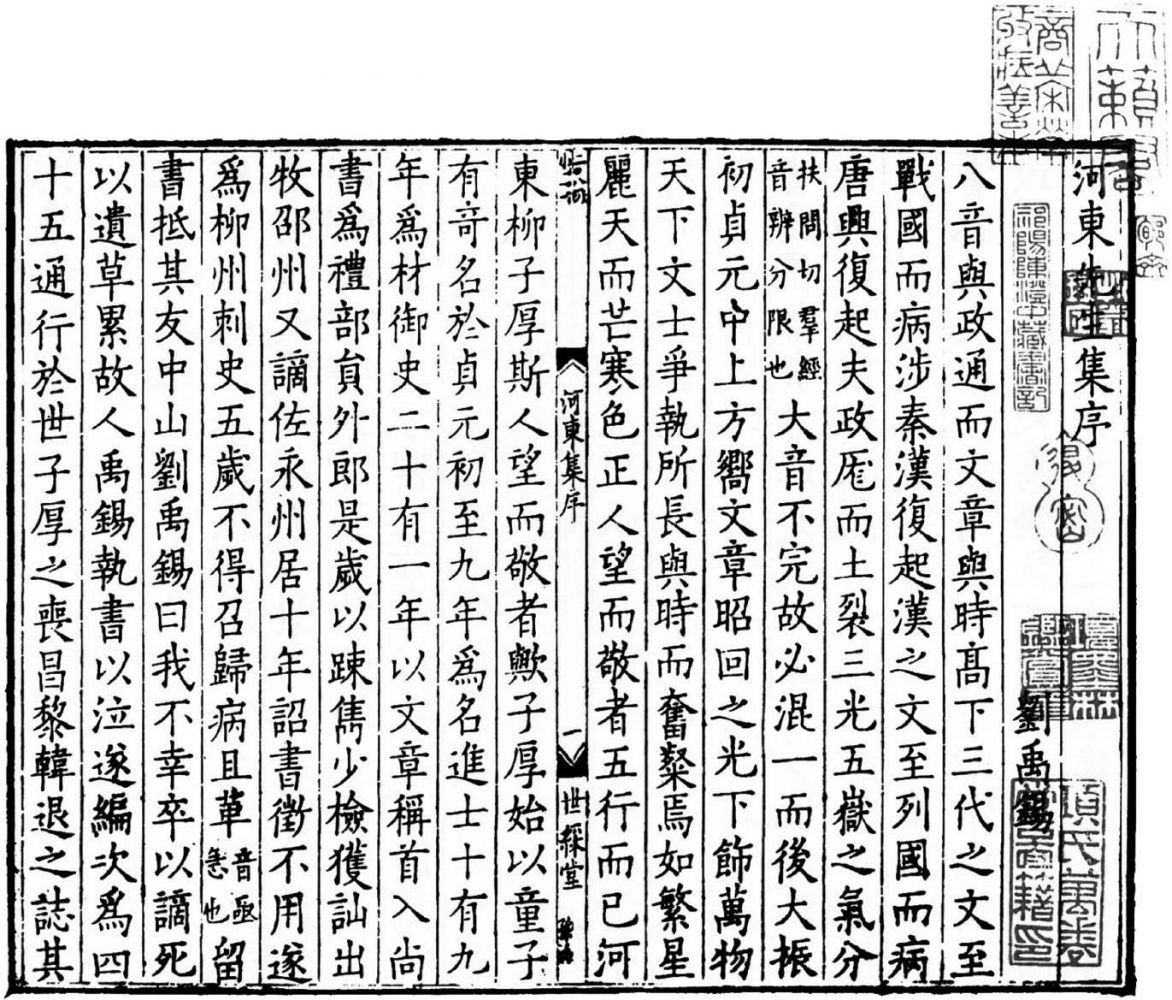 河東先生集序
祁陽陳澄中藏書記
劉禹錫
八音與政通而文章與時髙下三代之文至
戰國而病涉秦漢復起漢之文至列國而病
唐興復起夫政厖而土裂三光五嶽之氣分
扶問切羣經
音辨分限也
大音不完故必混一而後大振
初貞元中上方嚮文章昭回之光下飾萬物
天下文士爭執所長與時而奮粲焉如繁星
麗天而芒寒色正人望而敬者五行而已河
河東集序 一 世綵堂
東柳子厚斯人望而敬者歟子厚始以童子
有竒名於貞元初至九年爲名進士十有九
年爲材御史二十有一年以文章稱首入尚
書爲禮部貟外郎是歲以踈雋少檢獲訕出
牧邵州又謫佐永州居十年詔書徵不用遂
爲柳州刺史五歲不得召歸病且革音亟急也留
書抵其友中山劉禹錫曰我不幸卒以謫死
以遺草累故人禹錫執書以泣遂編次爲四
十五通行於世子厚之喪昌黎韓退之誌其